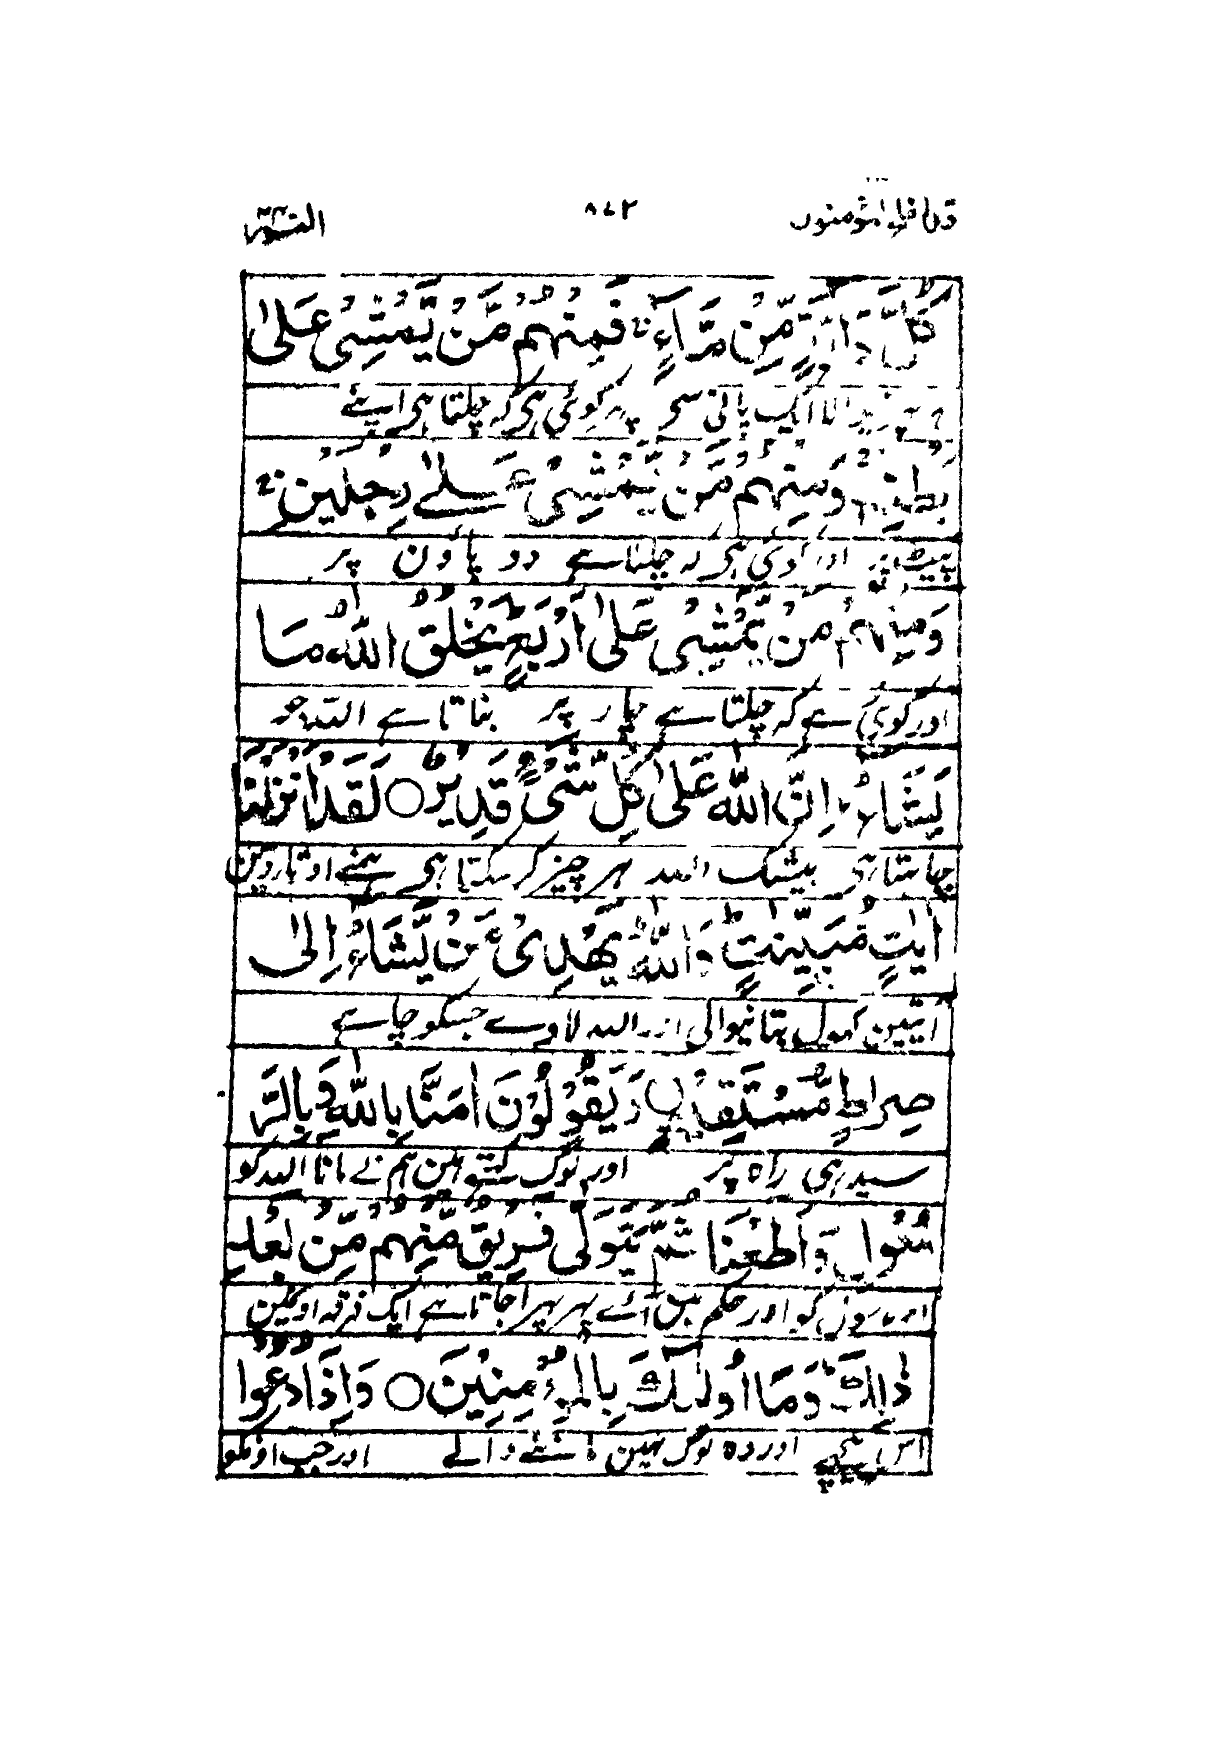 قد افلح المؤمنون ٨٧٢ النور
كُلَّ دَابَّةٍ مِّنْ مَّآءٍ فَمِنْهُمْ مَّنْ يَّمْشِيْ عَلٰى
ہر چیز والا ایک پانی سے پہر کوئی ہی کہ چلتا ہی اپنے
بَطْنِهٖ وَمِنْهُمْ مَّنْ يَّمْشِيْ عَلٰے رِجْلَيْنِ
پیٹ پر اور کوئی ہی کہ چلتا ہے دو پاؤن پر
وَمِنْهُمْ مَّنْ يَّمْشِيْ عَلٰى اَرْبَعٍ يَخْلُقُ اللّٰهُ مَا
اور کوئی ہے کہ چلتا ہے چار پر بناتا ہے اللہ جو
يَشَآءُ اِنَّ اللّٰهَ عَلٰى كُلِّ شَيْءٍ قَدِيْرٌ ○ لَقَدْ اَنْزَلْنَا
چاہتا ہی بیشک اللہ ہر چیز کر سکتا ہی ہمنے اوتاردین
اٰيٰتٍ مُّبَيِّنٰتٍ وَاللّٰهُ يَهْدِيْ مَنْ يَّشَآءُ اِلٰى
آیتین کھول بتانیوالی اور اللہ لاوے جسکو چاہے
صِرَاطٍ مُّسْتَقِيْمٍ وَيَقُوْلُوْنَ اٰمَنَّا بِاللّٰهِ وَبِالرَّ
سیدہی راہ پر اور لوگ کہتے ہین ہم نے مانا اللہ کو
سُوْلِ وَاَطَعْنَا ثُمَّ يَتَوَلّٰى فَرِيْقٌ مِّنْهُمْ مِّنْ بَعْدِ
اور رسول کو اور حکم مین آئے پہر پہرا جاتا ہے ایک فرقہ اونمین
ذٰلِكَ وَمَا اُولٰٓئِكَ بِالْمُؤْمِنِيْنَ ○ وَاِذَا دُعُوْا
اس پیچہے اور وہ لوگ نہین ماننے والے اور جب اونکو